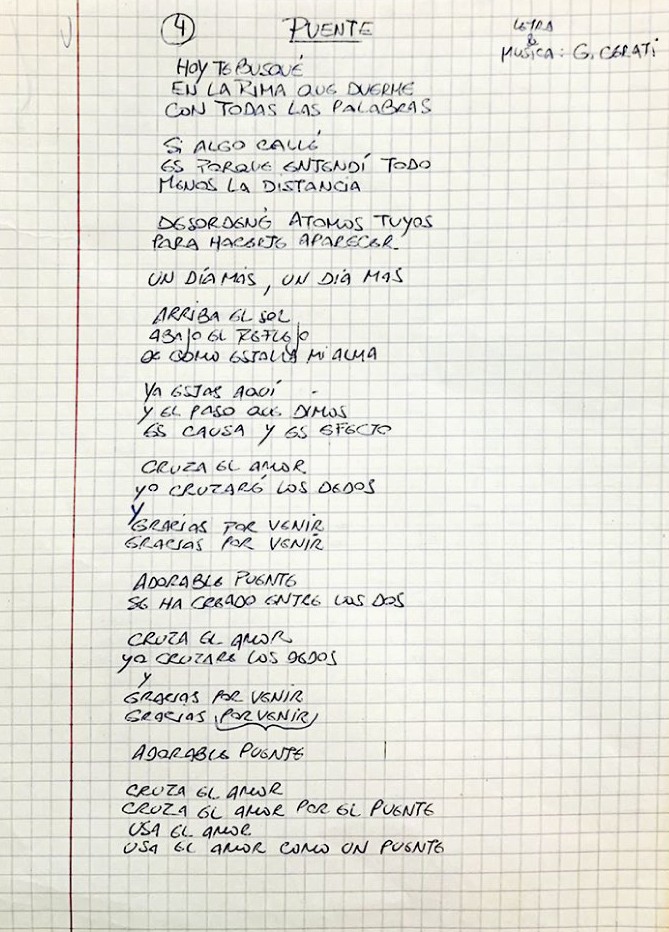 4 PUENTE
LETRA
&
MUSICA: G. CERATI
HOY TE BUSQUÉ
EN LA RIMA QUE DUERME
CON TODAS LAS PALABRAS
SI ALGO CALLÉ
ES PORQUE ENTENDÍ TODO
MENOS LA DISTANCIA
DESORDENÉ ATOMOS TUYOS
PARA HACERTE APARECER.
UN DÍA MAS, UN DÍA MAS
ARRIBA EL SOL
ABAJO EL REFLEJO
DE COMO ESTALLA MI ALMA
YA ESTAS AQUÍ
Y EL PASO QUE DIMOS
ES CAUSA Y ES EFECTO
CRUZA EL AMOR
YO CRUZARÉ LOS DEDOS
Y
GRACIAS POR VENIR
GRACIAS POR VENIR
ADORABLE PUENTE
SE HA CREADO ENTRE LOS DOS
CRUZA EL AMOR
YO CRUZARE LOS DEDOS
Y
GRACIAS POR VENIR
GRACIAS (PORVENIR)
ADORABLE PUENTE
CRUZA EL AMOR
CRUZA EL AMOR POR EL PUENTE
USA EL AMOR
USA EL AMOR COMO UN PUENTE